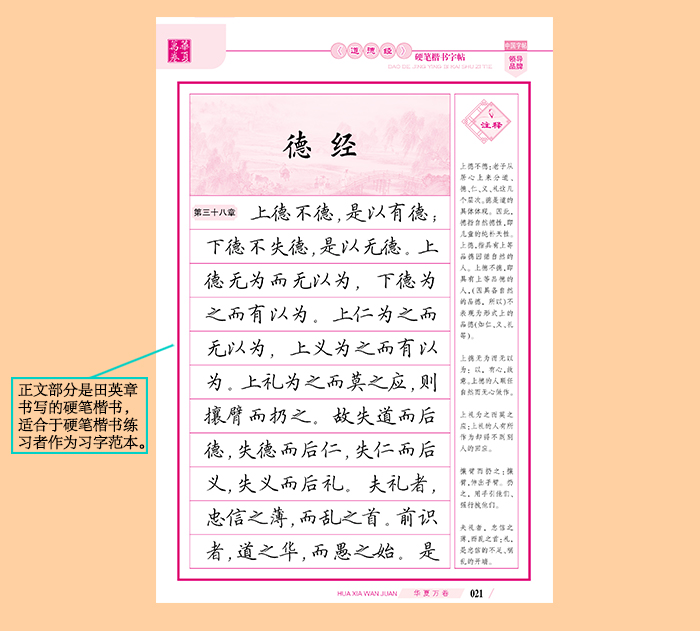 华夏万卷
《道德经》
硬笔楷书字帖
DAO DE JING YING BI KAI SHU ZI TIE
中国字帖
领导
品牌
德 经
第三十八章 上德不德,是以有德;
下德不失德,是以无德。上
德无为而无以为, 下德为
之而有以为。上仁为之而
无以为, 上义为之而有以
为。上礼为之而莫之应,则
攘臂而扔之。故失道而后
德,失德而后仁,失仁而后
义,失义而后礼。夫礼者,
忠信之薄,而乱之首。前识
者,道之华,而愚之始。是
注释
上德不德:老子从
居心上来分道、
德、仁、义、礼这几
个层次。德是道的
具体体现。因此,
德指自然德性,即
儿童的纯朴天性。
上德,指具有上等
品德因循自然的
人。上德不德,即
具有上等品德的
人,(因具备自然
的品德,所以)不
表现为形式上的
品德(如仁、义、礼
等)。
上德无为而无以
为:以,有心、故
意。上德的人顺任
自然而无心做作。
上礼为之而莫之
应:上礼的人有所
作为却得不到别
人的回应。
攘臂而扔之:攘
臂,伸出手臂。扔
之,用手引他们、
强行拽他们。
夫礼者,忠信之
薄,而乱之首:礼,
是忠信的不足、祸
乱的开端。
正文部分是田英章
书写的硬笔楷书,
适合于硬笔楷书练
习者作为习字范本。
HUA XIA WAN JUAN 华夏万卷 021